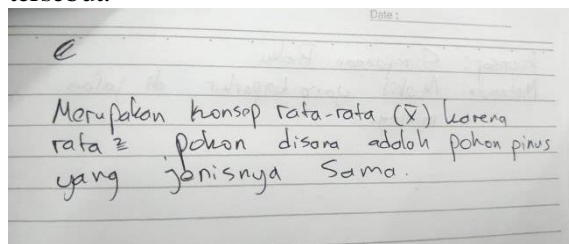 tersebut.
Date :
e
Merupakan konsep rata-rata (x̄) karena
rata 2 pohon disana adalah pohon pinus
yang jenisnya sama.